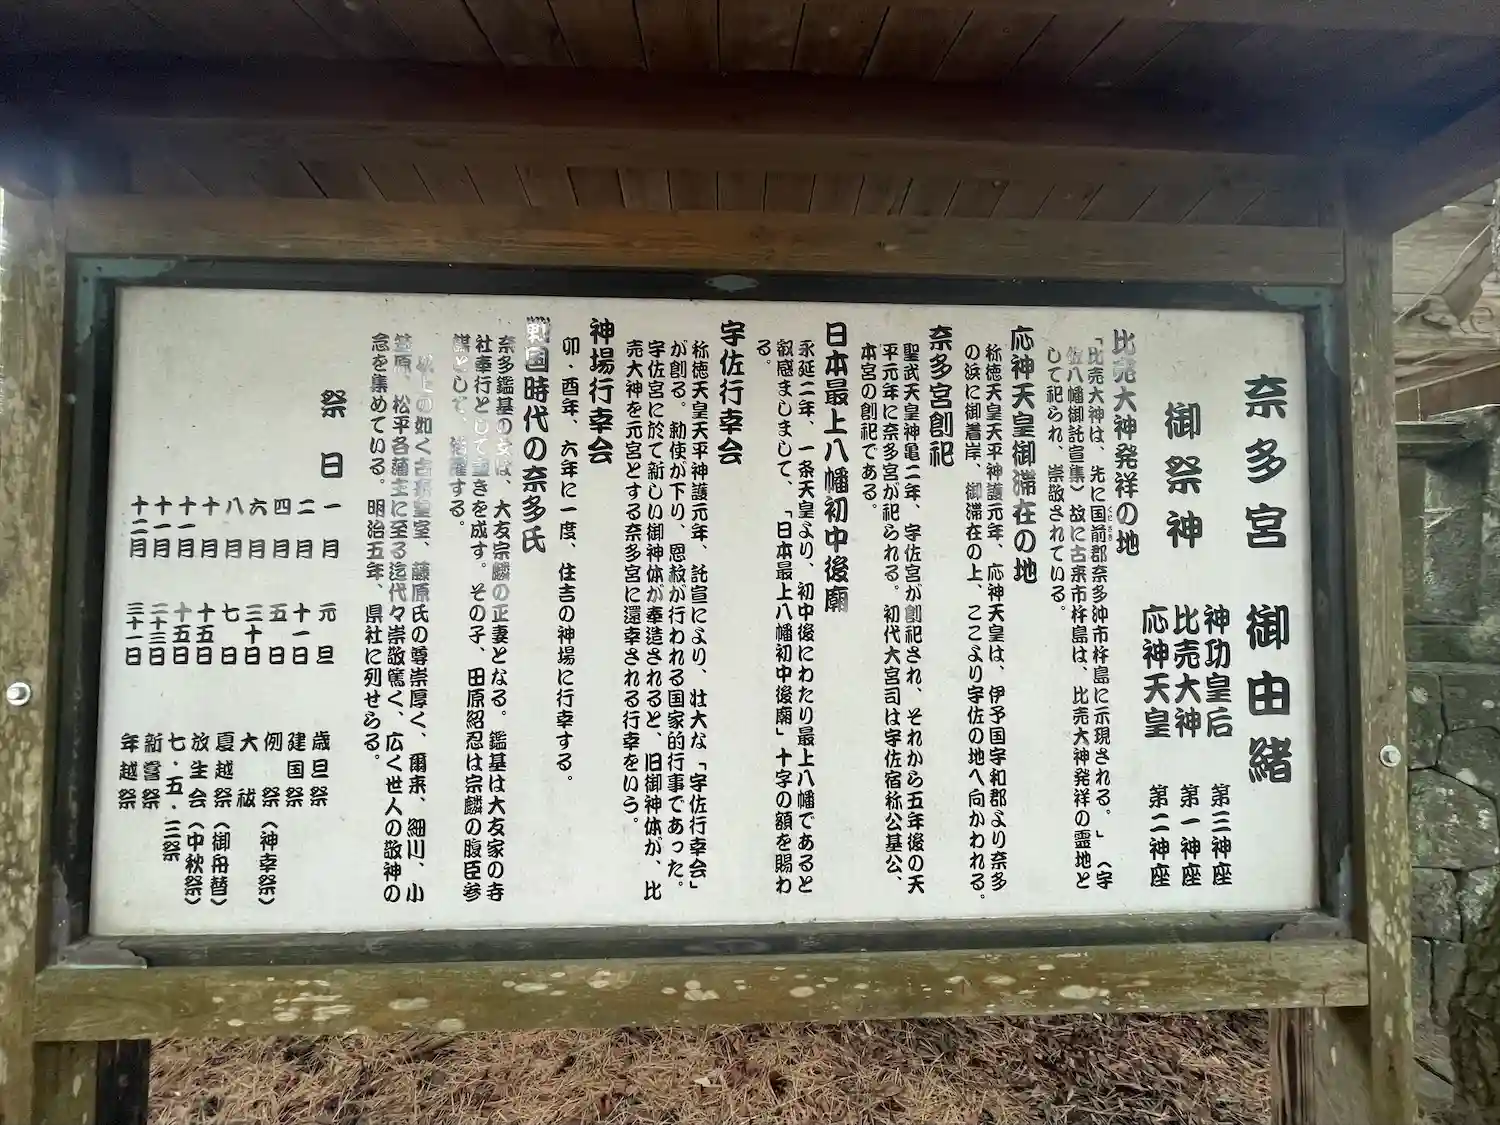 奈多宮 御由緒
御祭神
神功皇后 第三神座
比売大神 第一神座
応神天皇 第二神座
比売大神発祥の地
「比売大神は、先に国前郡奈多沖市杵島に示現される。」(宇
くにさき
佐八幡御託宣集)故に古来市杵島は、比売大神発祥の霊地と
して祀られ、崇敬されている。
応神天皇御滞在の地
称徳天皇天平神護元年、応神天皇は、伊予国宇和郡より奈多
の浜に御着岸、御滞在の上、ここより宇佐の地へ向かわれる。
奈多宮創祀
聖武天皇神亀二年、宇佐宮が創祀され、それから五年後の天
平元年に奈多宮が祀られる。初代大宮司は宇佐宿称公基公、
本宮の創祀である。
日本最上八幡初中後廟
永延二年、一条天皇より、初中後にわたり最上八幡であると
叡感ましまして、「日本最上八幡初中後廟」十字の額を賜わ
る。
宇佐行幸会
称徳天皇天平神護元年、託宣により、壮大な「宇佐行幸会」
が創る。勅使が下り、恩赦が行われる国家的行事であった。
宇佐宮に於て新しい御神体が奉造されると、旧御神体が、比
売大神を元宮とする奈多宮に還幸される行幸をいう。
神場行幸会
卯・酉年、六年に一度、住吉の神場に行幸する。
戦国時代の奈多氏
奈多鑑基の女は、大友宗麟の正妻となる。鑑基は大友家の寺
社奉行として重きを成す。その子、田原紹忍は宗麟の腹臣参
謀として、活躍する。
以上の如く古来皇室、藤原氏の尊崇厚く、爾来、細川、小
笠原、松平各藩主に至る迄代々崇敬篤く、広く世人の敬神の
念を集めている。明治五年、県社に列せらる。
祭日
一月 元旦 歳旦祭
二月 十一日 建国祭
四月 五日 例祭(神幸祭)
六月 三十日 大祓
八月 七日 夏越祭(御舟替)
十月 十五日 放生会(中秋祭)
十一月 十五日 七・五・三祭
十一月 二十三日 新嘗祭
十二月 三十一日 年越祭